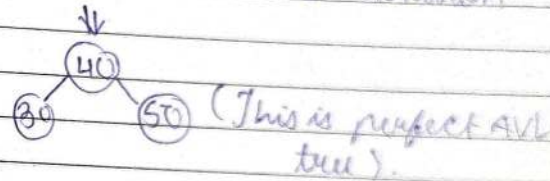 40
30 50 (This is perfect AVL
tree).